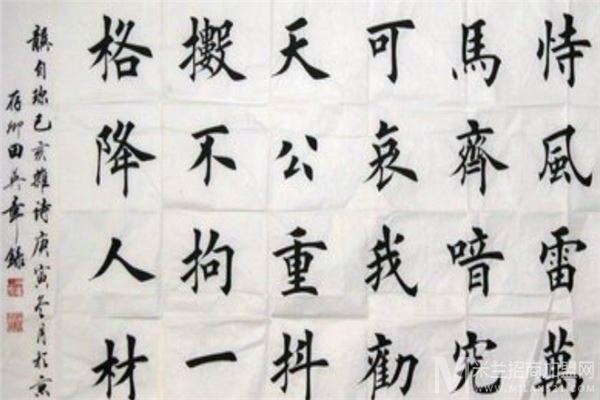 恃風雷萬
馬齊喑究
可哀我勸
天公重抖
擻不拘一
格降人材
龔自珍己亥雜詩庚寅冬月於京
存卿田英章錄
米兰招商加盟网